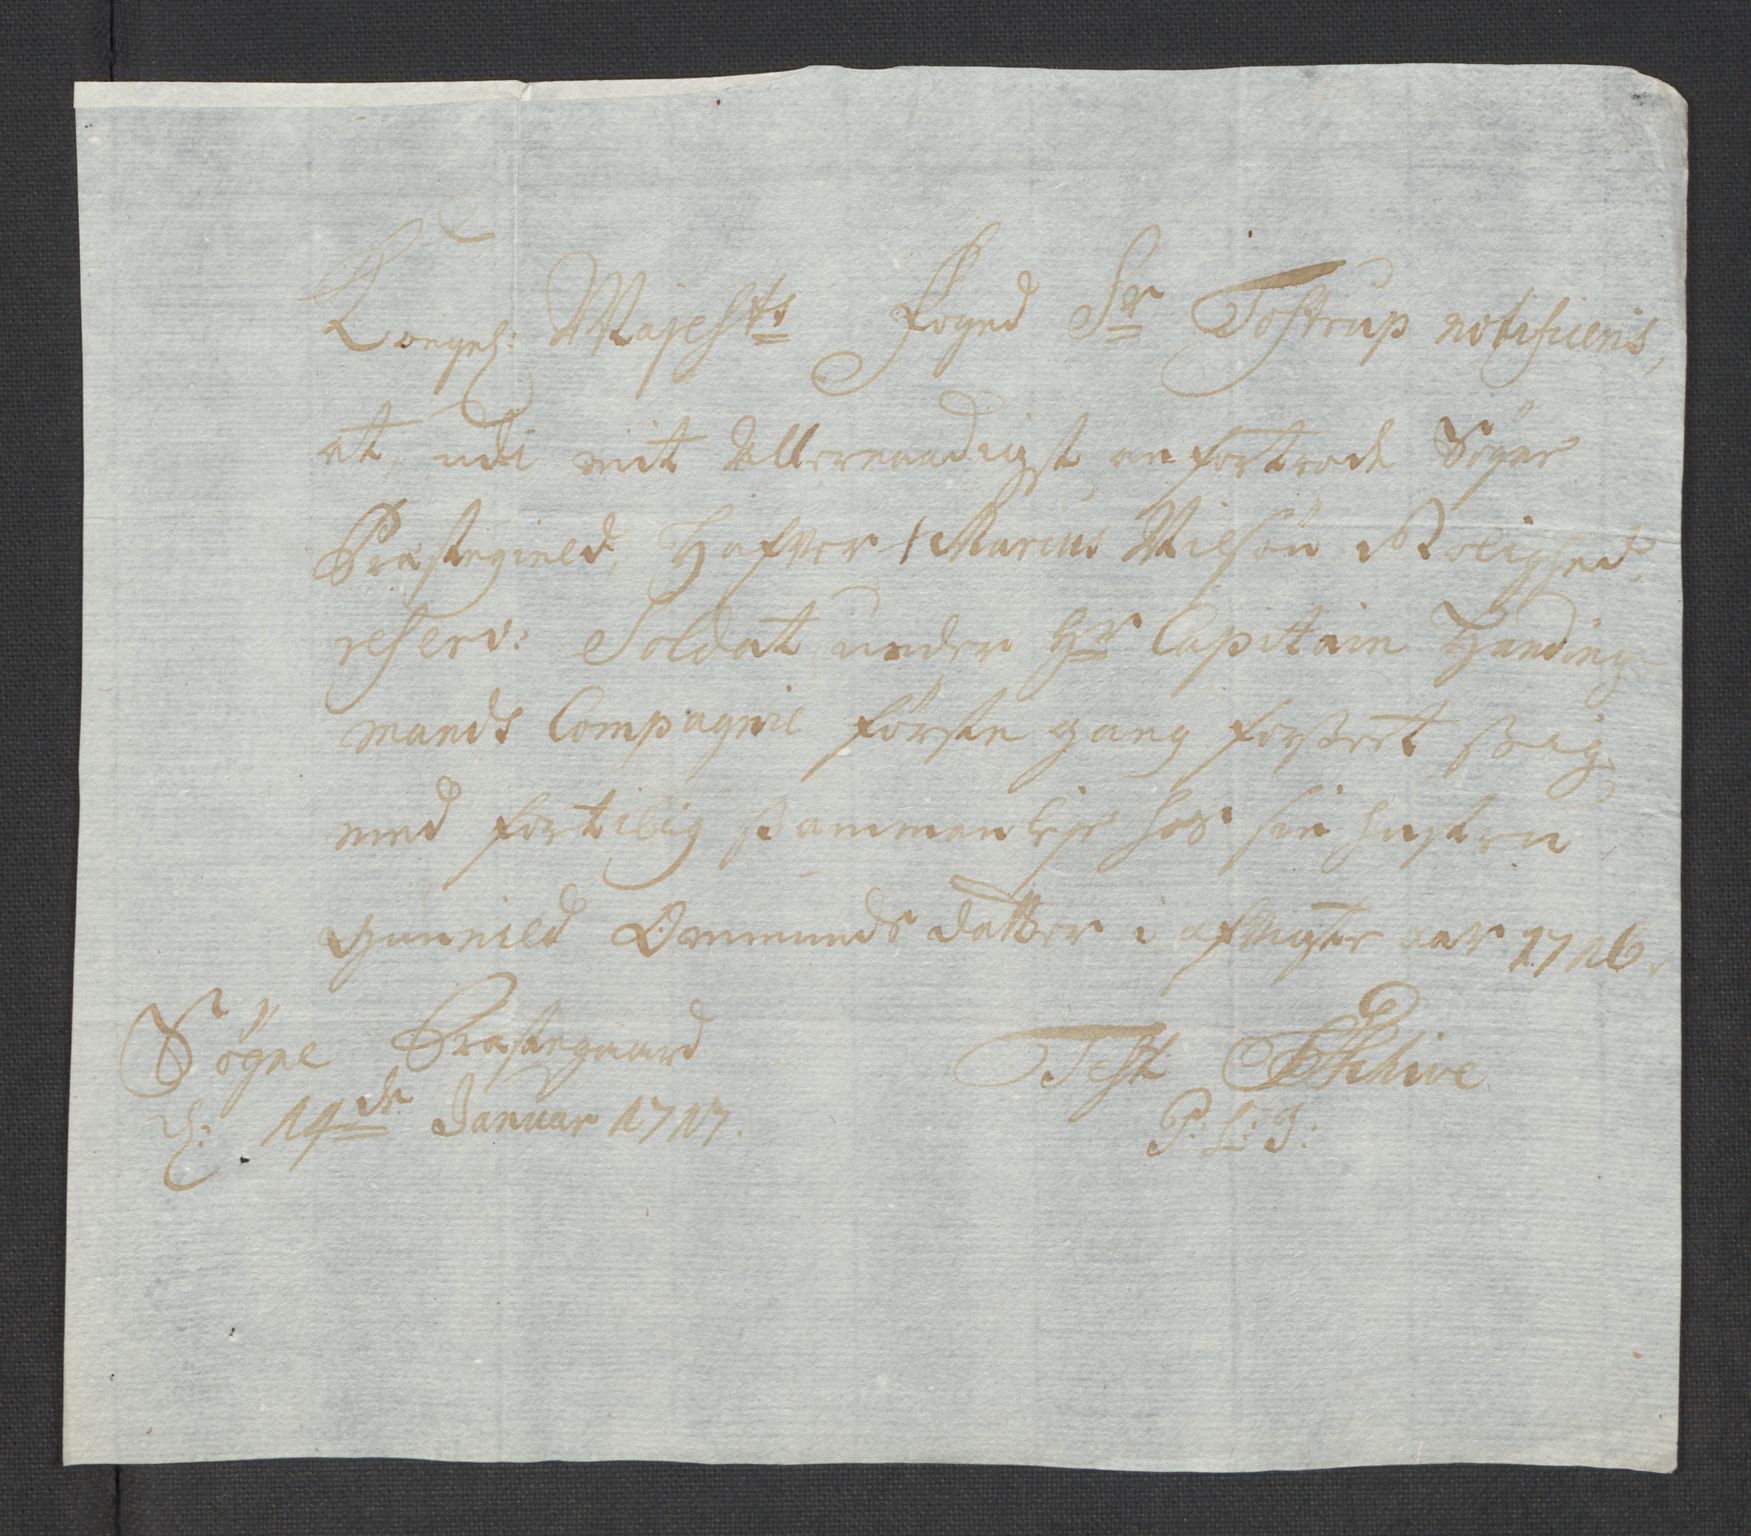 Kongel: Majests Foged Sr Tostrup notificeris,
at, udi mit Allernaadigst anfortrode Søgne
Præstegield, Hafver /Marcus Nilsøn Bolighed
reserv: Soldat under Hr Capitain Handing
mands Compagnie første gang forseet sig
med fortilig sammenleje hos sin hustru
Gunnild Ommunds datter i afvigte aar 1716.
Søgne Præstegaard
d: 14de Januar 1717.
Test Schive
P: L: J: